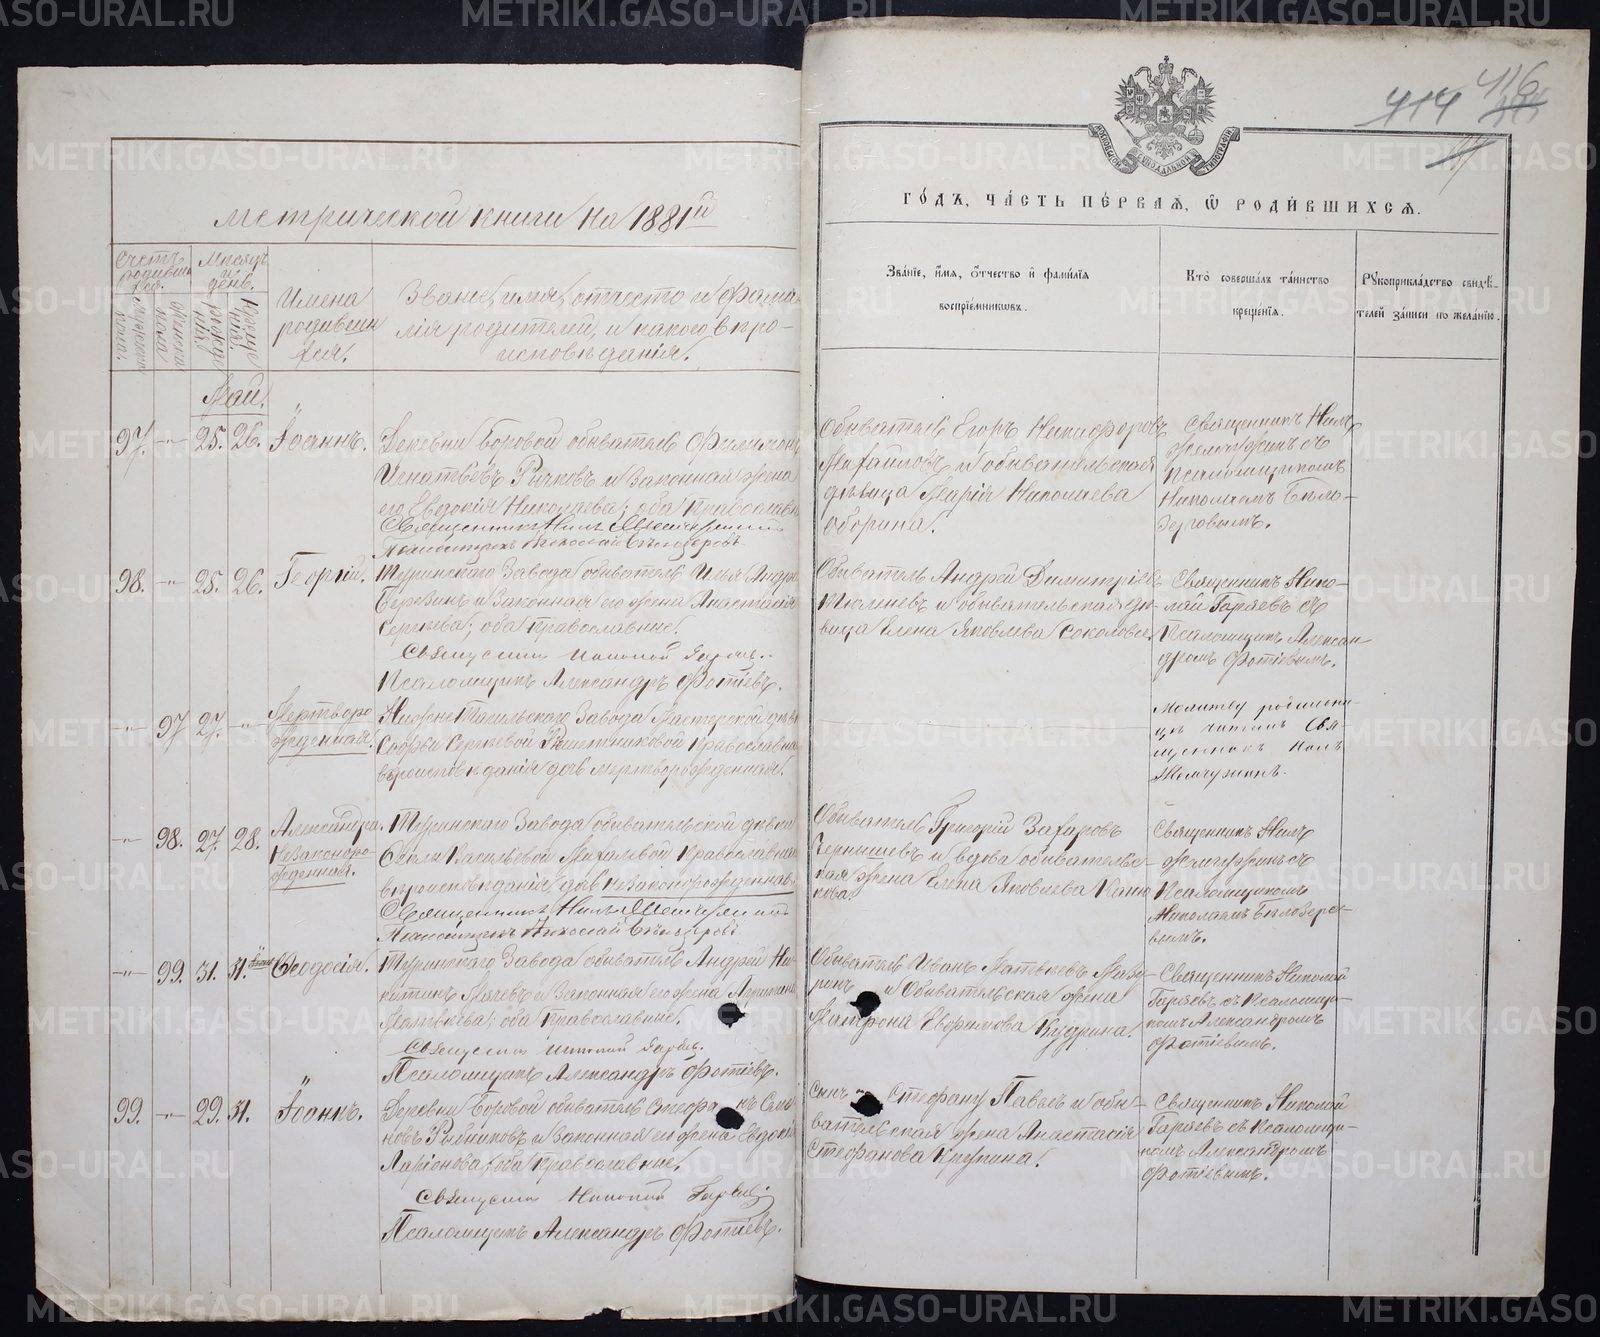 METRIKI.GASO-URAL.RU
414 416
МОСКОВСКОЙ СѴНОДАЛЬНОЙ ТИПОГРАФІИ
Метрической книги на 1881й
ГОДЪ, ЧАСТЬ ПЕРВАЯ, Ѿ РОДИВШИХСЯ.
Счетъ родившихся.
Мѣсяцъ и день.
Имена родившихся.
Званіе, имя, отчество и фамилія родителей, и какого вѣроисповѣданія.
Званіе, имя, отчество и фамилія воспріемниковъ.
Кто совершалъ таинство крещенія.
Рукоприкладство свидѣтелей записи по желанію.
Май.
97. -"- 25. 26. Іоаннъ.
Деревни Боровой обыватель Филимонъ
Игнатьевъ Рычковъ и законная жена
его Евдокія Николаева; оба православн
Священникъ Нилъ
Псаломщикъ Николай Бѣлозеровъ
Обыватель Егоръ Никифоровъ
Михайловъ и обывательская
дѣвица Марія Николаева
Оборина.
Священникъ Нилъ
Жемчужинъ съ
Псаломщикомъ
Николаемъ Бѣло-
зеровымъ.
98. -"- 25. 26. Георгій.
Туринскаго Завода обыватель Илья Андре
Березинъ и законная его жена Анастасія
Сергѣева; оба православные.
Священник Николай Гаряевъ.
Псаломщикъ Александръ Фотіевъ.
Обыватель Андрей Димитріевъ
Тюленевъ и обывательская дѣ-
вица Елена Яковлева Соколова.
Священникъ Нико-
лай Гаряевъ съ
Псаломщик. Алексан-
дромъ Фотіевымъ.
-"- 97 27. -"- Мертворо
жденная.
Нижне Тагильскаго Завода мастерской дѣвки
Сергѣевой Рѣшетниковой православна
вѣроисповѣданія дочь мертворожденная.
Молитву родильни-
цѣ читалъ Свя-
щенникъ Нилъ
Жемчужинъ.
-"- 98. 27. 28. Александра.
Незаконоро-
жденная.
Туринскаго Завода обывательской дѣвки
Васильевой православна
вѣроисповѣданія дочь незаконорожденная.
Священникъ Нилъ
Псаломщикъ Николай Бѣлозеровъ
Обыватель Григорій Захаровъ
Чернышевъ и вдова обыватель-
ская жена Елена Яковлева
кова.
Священникъ Нилъ
Жемчужинъ съ
Псаломщикомъ
Николаемъ Бѣлозеро-
вымъ.
-"- 99. 31. 31. Ѳеодосія.
Туринскаго Завода обыватель Андрей Ни-
китинъ и законная его жена
Матвѣева; оба православные.
Священник Николай Гаряевъ.
Псаломщикъ Александръ Фотіевъ.
Обыватель Иванъ Матвѣевъ Мазу-
ринъ и обывательская жена
Митрофона Ефимова Кудрина.
Священникъ Николай
Гаряевъ съ Псаломщи-
комъ Александромъ
Фотіевымъ.
99. -"- 29. 31. Іоаннъ.
Деревни Боровой обыватель Стефа нъ Семе
новъ Рыбниковъ и законная его жена Евдокія
Ларіонова; оба православные.
Священник Николай Гаряевъ
Псаломщикъ Александръ Фотіевъ.
Сынъ Стефану Павелъ и обы-
вательская жена Анастасія
Стефанова Крупина.
Священникъ Николай
Гаряевъ съ Псаломщи-
комъ Александромъ
Фотіевымъ.